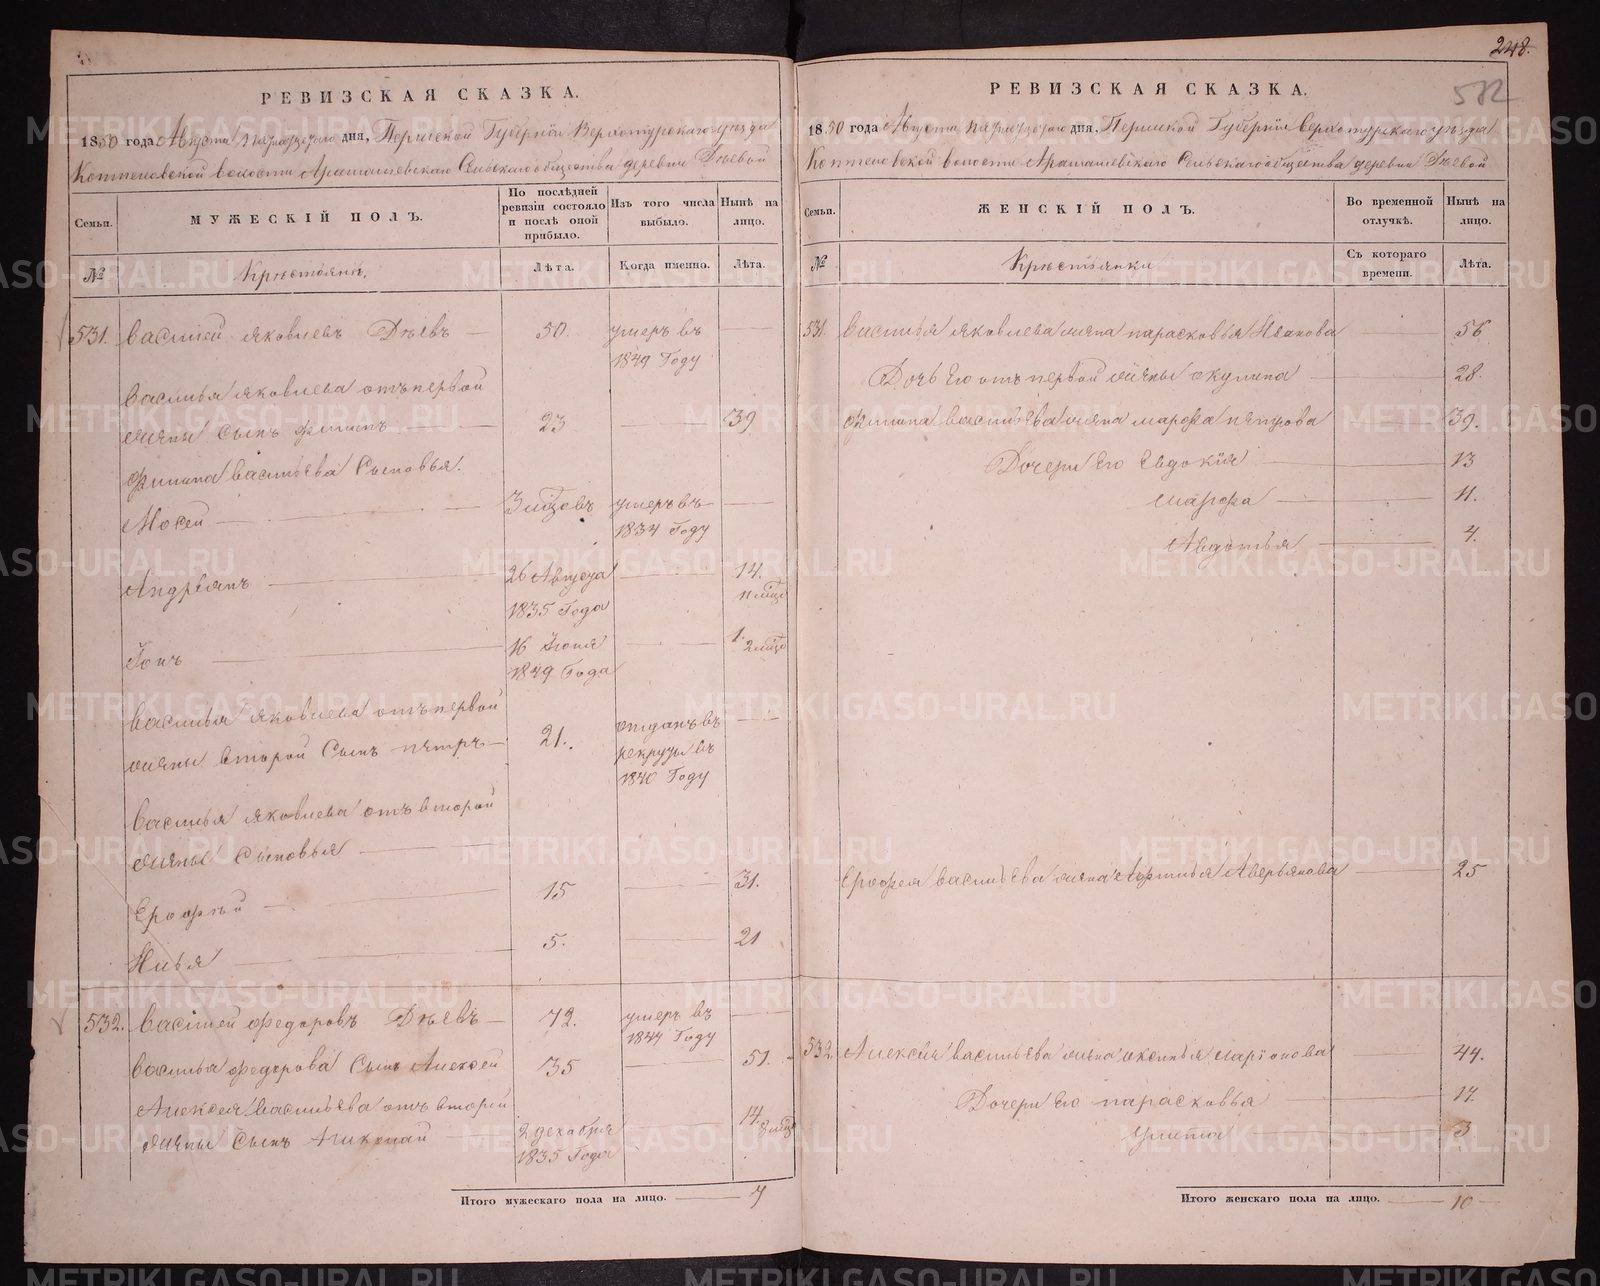 248.
532
РЕВИЗСКАЯ СКАЗКА.
1850 года Августа дня, Пермской Губернiи Верхотурскаго уезда
Коптеловской волости Арамашевскаго Сельскаго общества деревни Дѣевой
Семьи.
МУЖЕСКIЙ ПОЛЪ.
По послѣдней ревизiи состояло и послѣ оной прибыло.
Изъ того числа выбыло.
Нынѣ на лицо.
№
Крестьяне.
Лѣта.
Когда именно.
Лѣта.
531. Василей Яковлевъ Дѣевъ — 50. умеръ въ —
1849 Году
Василья Яковлева отъ первой
жены сынъ Филипъ — 23 — 39
Филипа Васильева Сыновья.
Мосей — 3 мцовъ умеръ въ —
1834 Году
Андреянъ — 26 Августа — 14.
1835 Года 11 мцо
Iонъ — 16 Iюня — 1. 2 мцо
1849 Года
Василья Яковлева отъ первой
жены второй Сынъ петръ — 21. отданъ въ —
рекруты въ
1840 Году
Василья Яковлева отъ второй
жены Сыновья —
Ерофѣй — 15 — 31.
Илья — 5. — 21
532. Василей Федоровъ Дѣевъ — 72. умеръ въ —
1844 Году
Василья Федорова Сынъ Алексей 35 — 51.
Алексея Васильева отъ второй
жены Сынъ Николай — 2 декабря — 14. 8 мцо
1835 Года
Итого мужескаго пола на лицо. — 7
РЕВИЗСКАЯ СКАЗКА.
1850 года Августа дня, Пермской Губернiи Верхотурскаго уезда
Коптеловской волости Арамашевскаго Сельскаго общества деревни Дѣевой
Семьи.
ЖЕНСКIЙ ПОЛЪ.
Во временной отлучкѣ.
Нынѣ на лицо.
№
Крестьянки
Съ котораго времени.
Лѣта.
531. Василья Яковлева жена парасковья Иванова — 56
Дочь Его отъ первой жены окулина — 28.
Филипа Васильева жена марфа петрова — 39.
Дочери Его Евдокiя — 13
марфа — 11.
Авдотья — 4.
Ерофея Васильева жена Аверьянова — 25
532. Алексея Васильева жена оксинья ларiонова — 44.
Дочери Его парасковья — 17.
улита — 3
Итого женскаго пола на лицо. — 10 —
METRIKI.GASO-URAL.RU